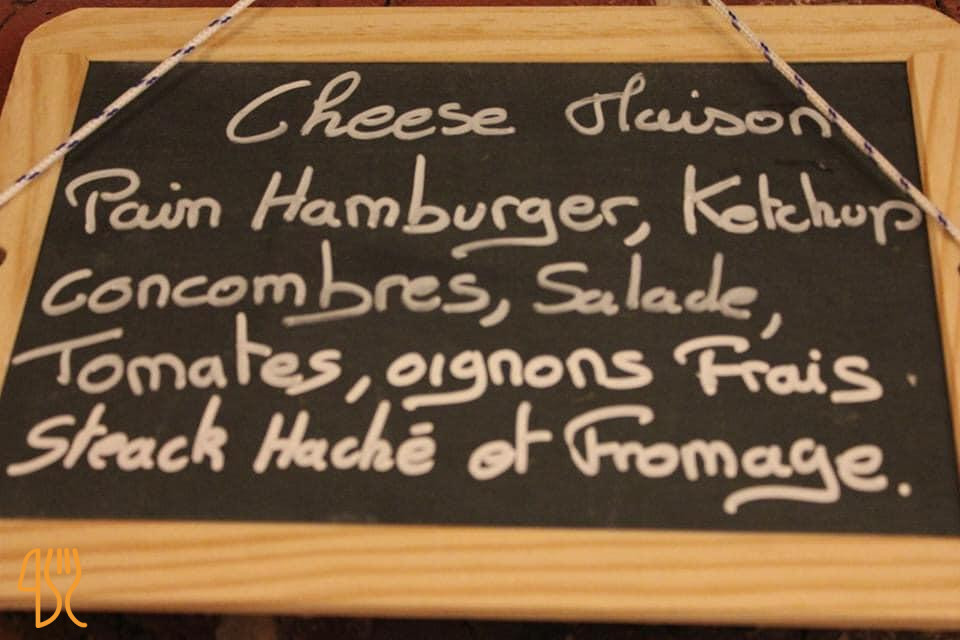 Cheese Maison
Pain Hamburger, Ketchup
Concombres, Salade,
Tomates, oignons Frais.
Steack Haché et Fromage.